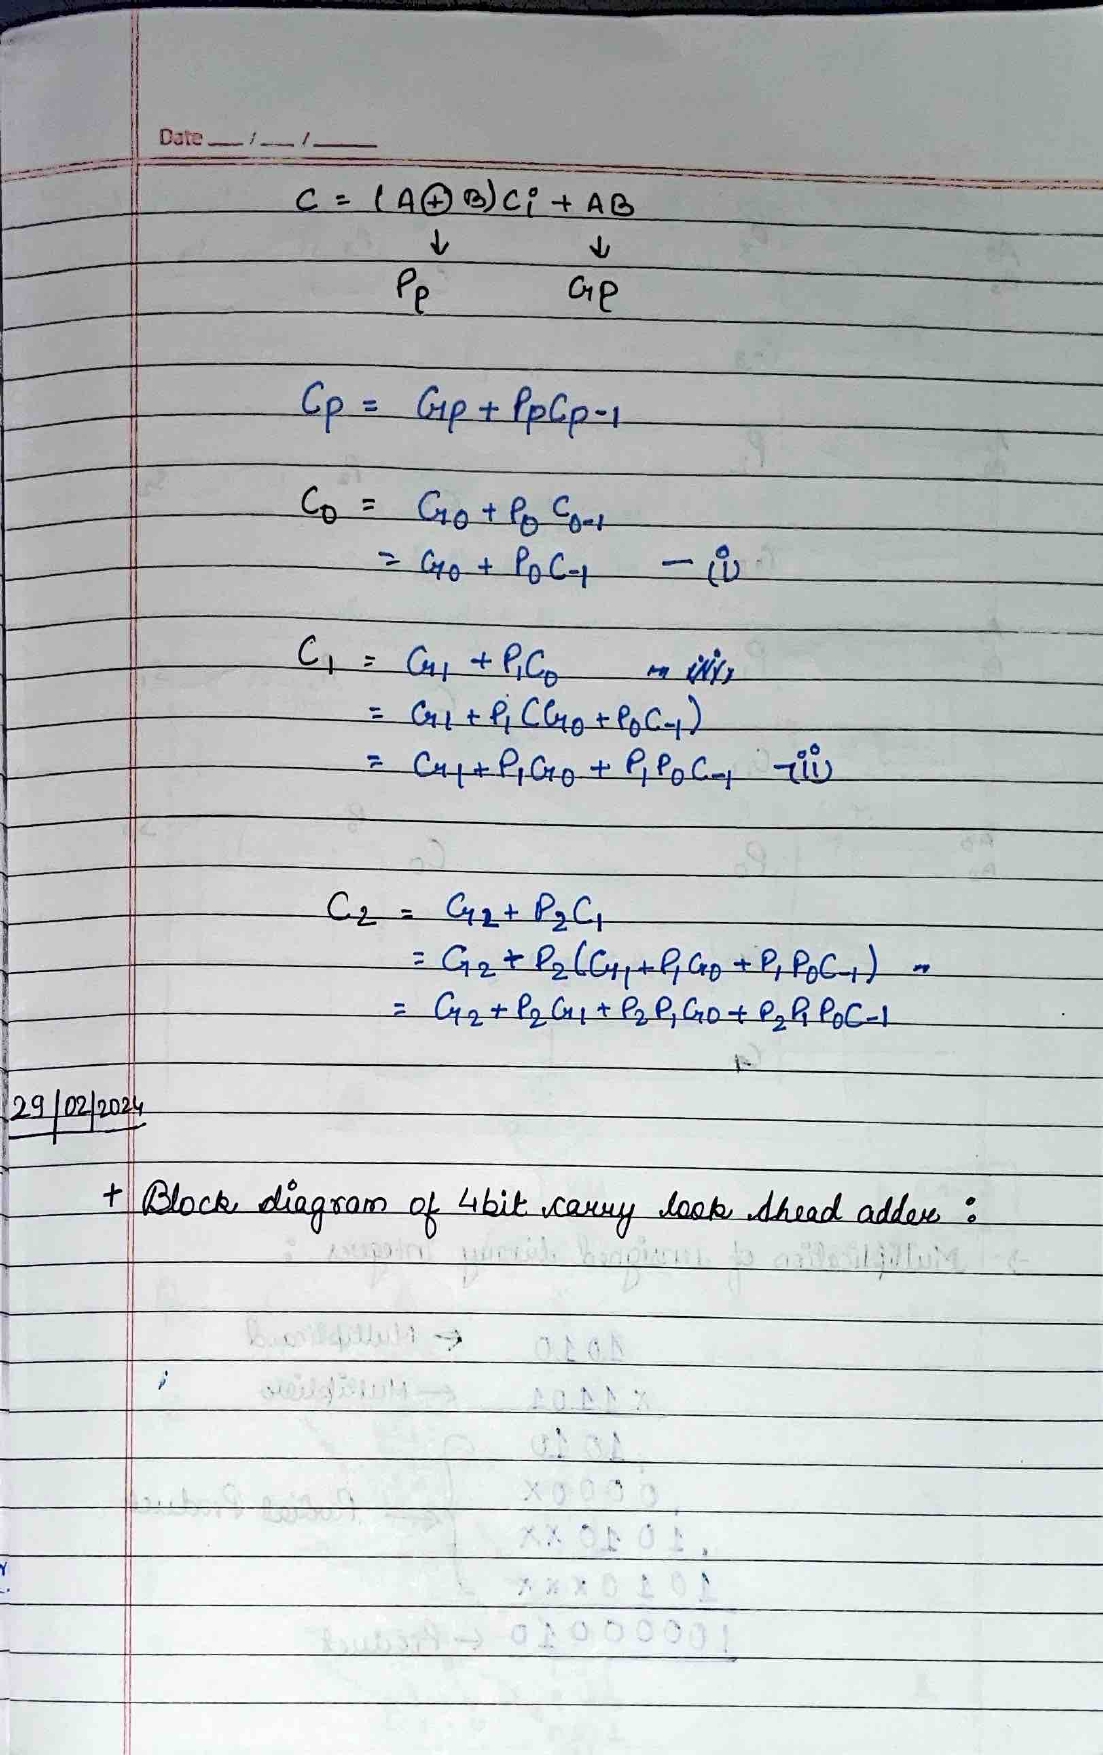 Date __/__/____
C = (A⊕B)Ci + AB
↓ ↓
Pp Gp
Cp = Gp + PpCp-1
C0 = G0 + P0 C0-1
= G0 + P0C-1 - i)
C1 = G1 + P1C0
= G1 + P1(G0 + P0C-1)
= G1 + P1G0 + P1P0C-1 - ii)
C2 = G2 + P2C1
= G2 + P2(G1 + P1G0 + P1P0C-1)
= G2 + P2G1 + P2P1G0 + P2P1P0C-1
29/02/2024
+ Block diagram of 4bit carry look Ahead adder :